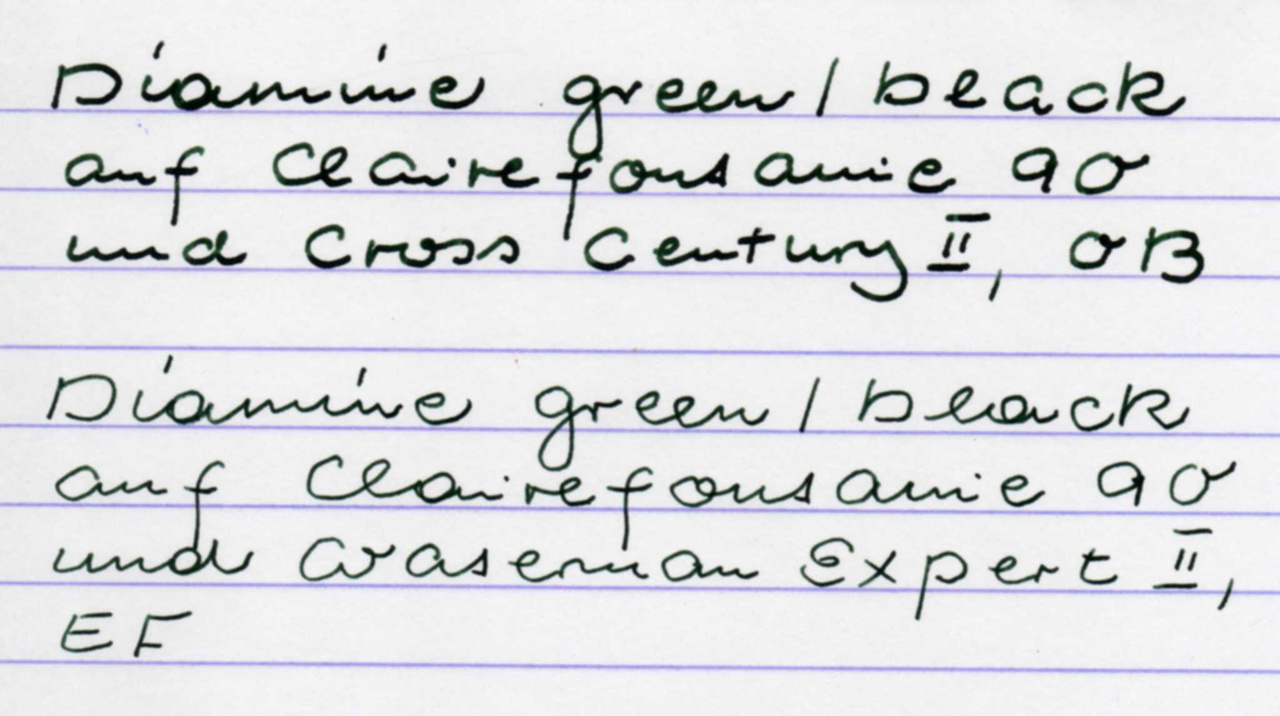 Diamine green/black
auf Clairefontaine 90
und Cross Century II, OB
Diamine green/black
auf Clairefontaine 90
und Waterman Expert II,
EF